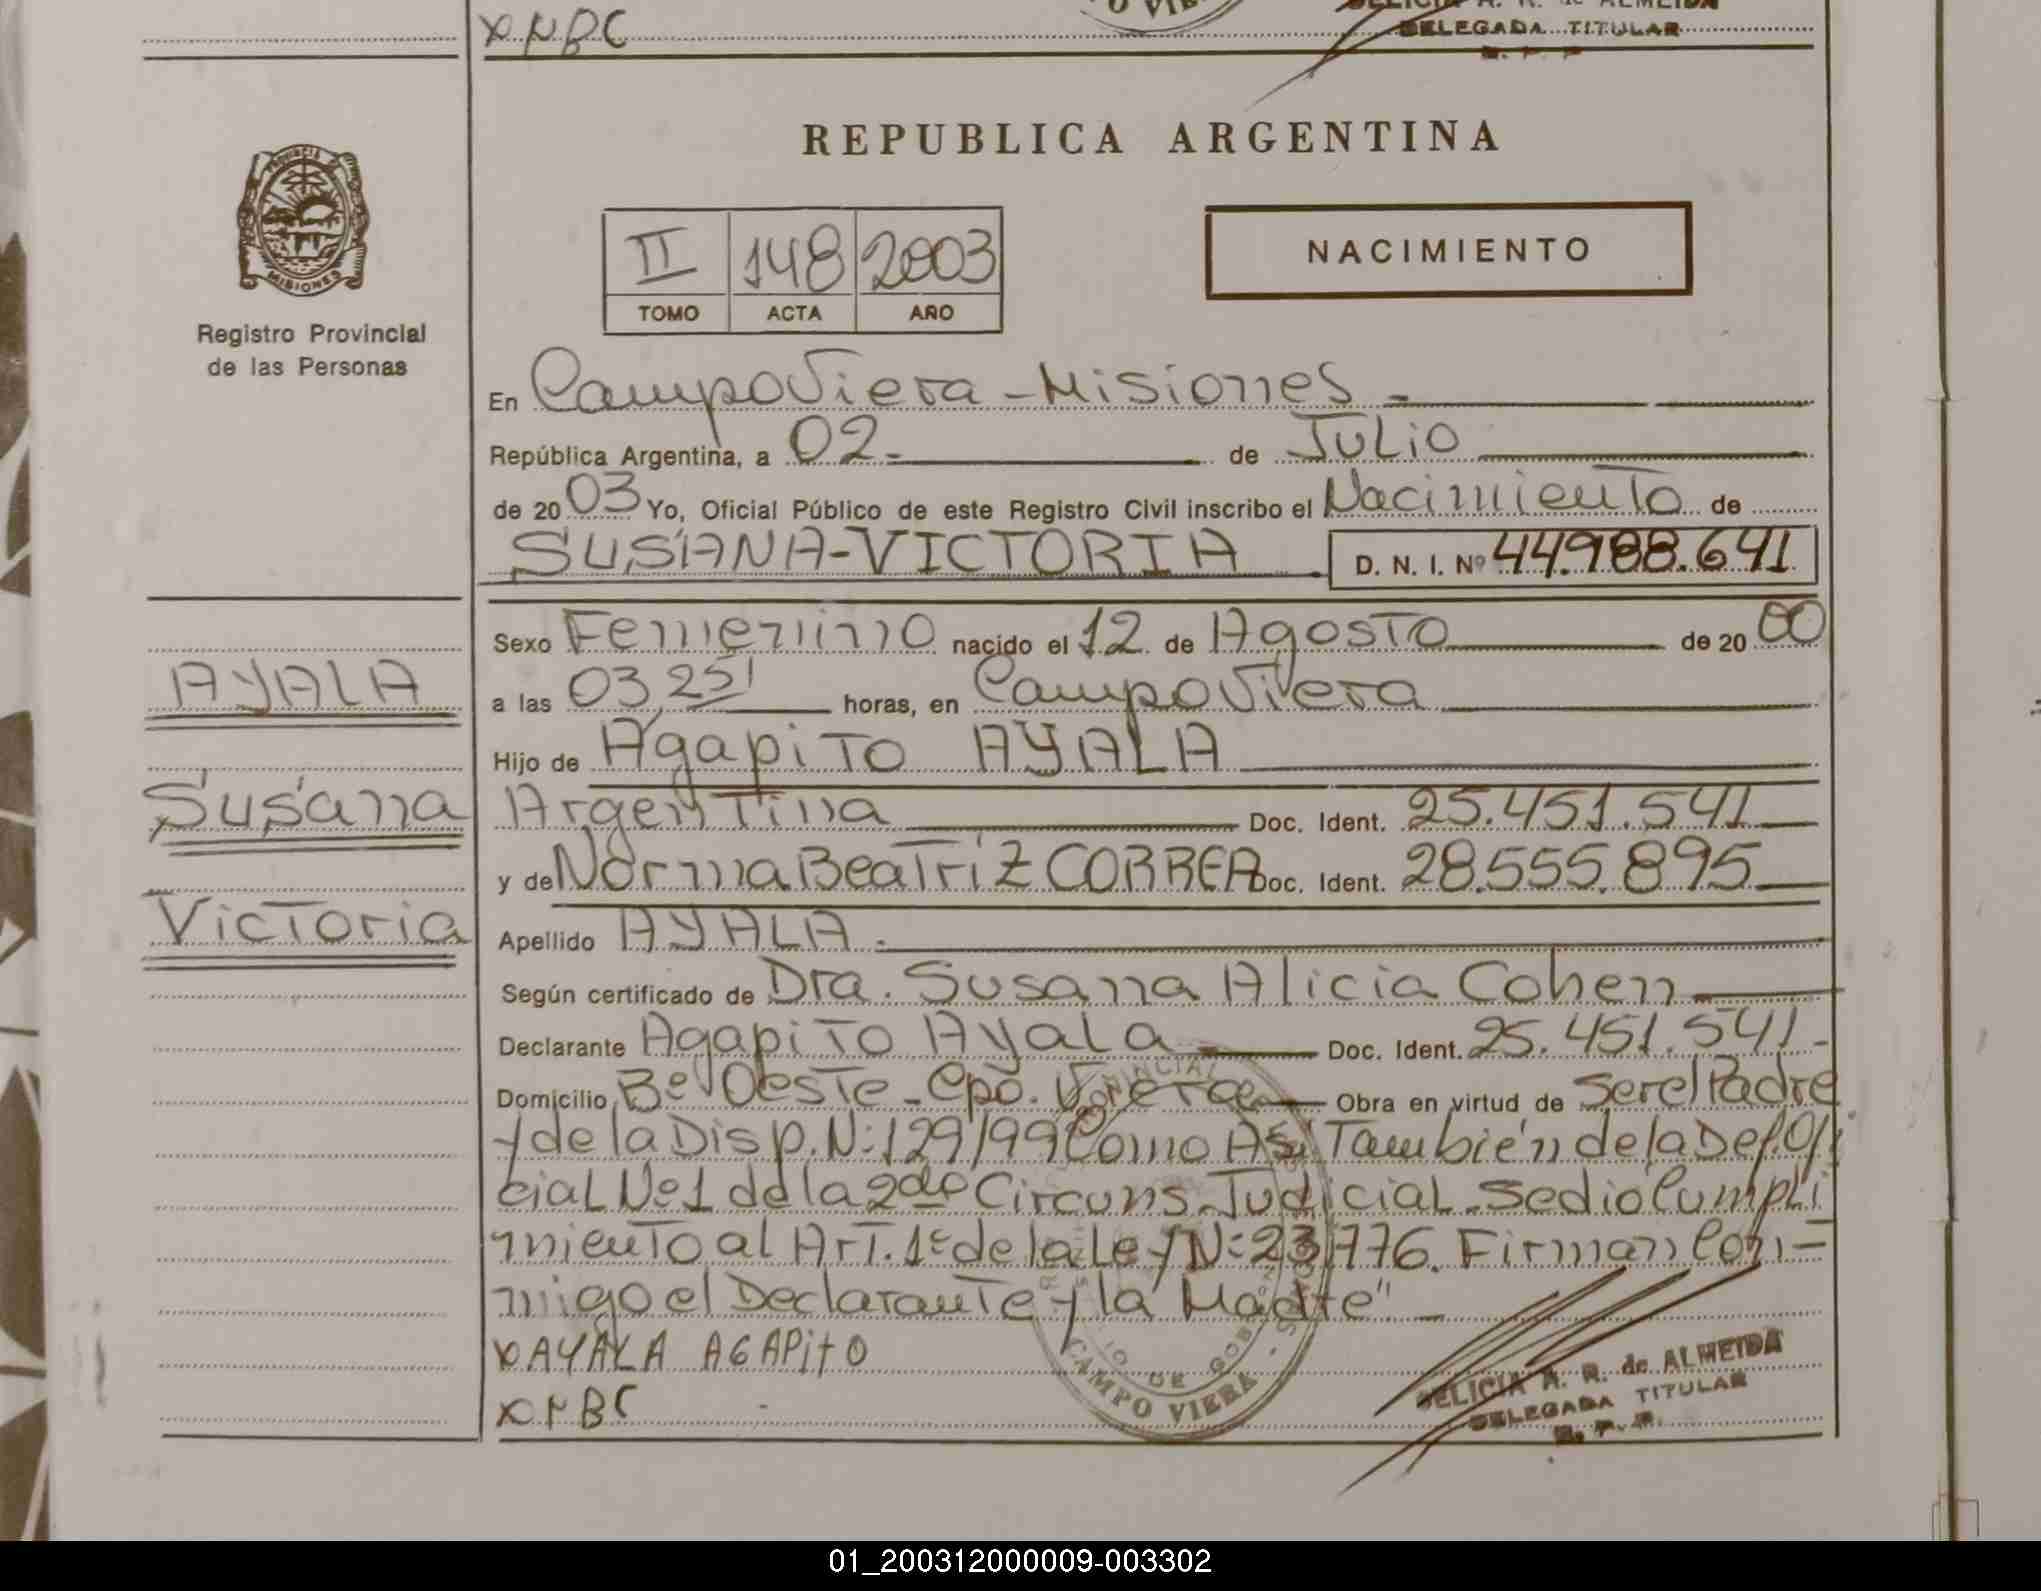 XNBC
DELICIA A. R. de ALMEIDA
DELEGADA TITULAR
REPUBLICA ARGENTINA
PROVINCIA
MISIONES
Registro Provincial
de las Personas
II 148 2003
TOMO ACTA AÑO
NACIMIENTO
En Campo Viera - Misiones -
República Argentina, a 02 - de Julio
de 2003 Yo, Oficial Público de este Registro Civil inscribo el Nacimiento de
SUSANA-VICTORIA D. N. I. Nº 44.988.641
Sexo Femenino nacido el 12 de Agosto de 2000
a las 03,25' horas, en Campo Viera
Hijo de Agapito AYALA
Argentina Doc. Ident. 25.451.541
y de Norma Beatriz CORREA Doc. Ident. 28.555.895
Apellido AYALA.
Según certificado de Dra. Susana Alicia Cohen
Declarante Agapito Ayala Doc. Ident. 25.451.541-
Domicilio Bº Oeste - Cpo. Viera Obra en virtud de Ser el Padre
y de la Disp. Nº 129/99 Como Así También de la Def. Ofi
cial Nº 1 de la 2da Circuns. Judicial - Se dio Cumpli
miento al Art. 1º de la Ley Nº 23.776. Firman Con-
migo el Declarante y la Madre" -
X AYALA AGAPitO
XNBC
AYALA
Susana
Victoria
CAMPO VIERA
DELICIA A. R. de ALMEIDA
DELEGADA TITULAR
R. P. P.
01_200312000009-003302